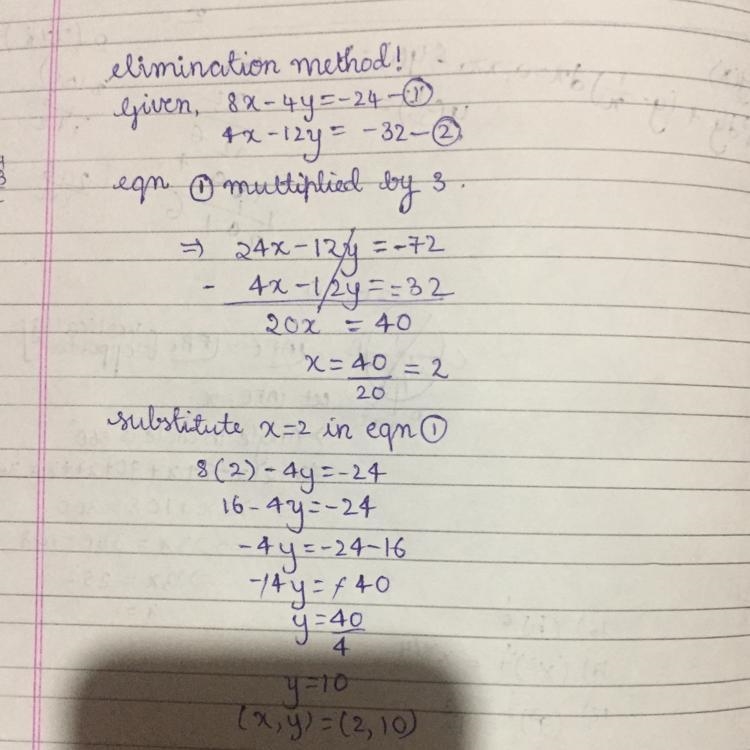 elimination method!
Given, 8x-4y=-24-①
4x-12y= -32-②
eqn ① multiplied by 3.
⇒ 24x-12y=-72
- 4x-12y=-32
20x = 40
x=40/20=2
substitute x=2 in eqn①
8(2)-4y=-24
16-4y=-24
-4y=-24-16
-4y=-40
y=40/4
y=10
(x,y)=(2,10)